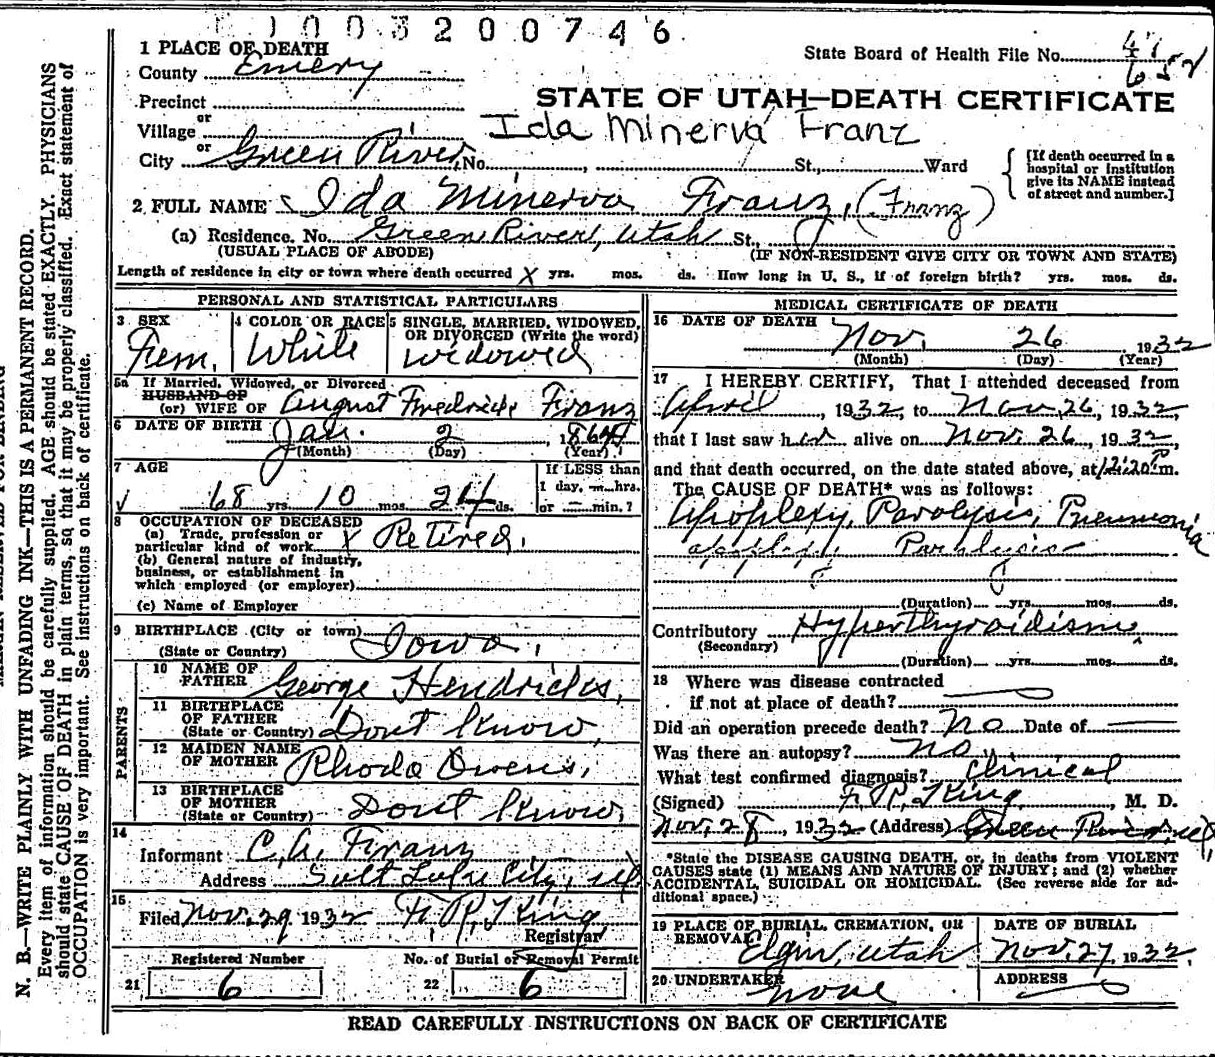 1003200746
1 PLACE OF DEATH
State Board of Health File No. 41
652
County Emery
STATE OF UTAH—DEATH CERTIFICATE
Precinct
or
Village
Ida Minerva Franz
or
City Green River, No. , St., Ward
[If death occurred in a
hospital or institution
give its NAME instead
of street and number.]
2 FULL NAME Ida Minerva Franz, (Franz)
(a) Residence. No. Green River, Utah St.,
(USUAL PLACE OF ABODE) (IF NON-RESIDENT GIVE CITY OR TOWN AND STATE)
Length of residence in city or town where death occurred X yrs. mos. ds. How long in U. S., if of foreign birth? yrs. mos. ds.
PERSONAL AND STATISTICAL PARTICULARS
3 SEX
Fem.
4 COLOR OR RACE
White
5 SINGLE, MARRIED, WIDOWED,
OR DIVORCED (Write the word)
widowed
5a If Married, Widowed, or Divorced
HUSBAND OF
(or) WIFE OF August Fredrick Franz
6 DATE OF BIRTH Jan. 2, 1864
(Month) (Day) (Year)
7 AGE
68 yrs. 10 mos. 24 ds.
If LESS than
1 day, hrs.
or min.?
8 OCCUPATION OF DECEASED
(a) Trade, profession or
particular kind of work X Retired.
(b) General nature of industry,
business, or establishment in
which employed (or employer)
(c) Name of Employer
9 BIRTHPLACE (City or town)
(State or Country) Iowa,
PARENTS
10 NAME OF
FATHER George Hendricks,
11 BIRTHPLACE
OF FATHER
(State or Country) Dont Know,
12 MAIDEN NAME
OF MOTHER Rhoda Owens,
13 BIRTHPLACE
OF MOTHER
(State or Country) Dont Know,
14
Informant C.A. Franz
Address Salt Lake City, ut
15
Filed Nov. 29 1932 F. R. King
Registrar
Registered Number
21 6
No. of Burial or Removal Permit
22 6
MEDICAL CERTIFICATE OF DEATH
16 DATE OF DEATH
Nov. 26, 1932
(Month) (Day) (Year)
17 I HEREBY CERTIFY, That I attended deceased from
April, 1932, to Nov. 26, 1932,
that I last saw her alive on Nov. 26, 1932,
and that death occurred, on the date stated above, at 12:20 P. m.
The CAUSE OF DEATH* was as follows:
Apoplexy, Paralysis, Pneumonia
apoplexy, Paralysis
(Duration) yrs. mos. ds.
Contributory Hyperthyroidism
(Secondary)
(Duration) yrs. mos. ds.
18 Where was disease contracted
if not at place of death?
Did an operation precede death? No Date of
Was there an autopsy? No
What test confirmed diagnosis? Clinical
(Signed) F. R. King, M. D.
Nov. 28, 1932 (Address) Green River, ut,
*State the DISEASE CAUSING DEATH, or, in deaths from VIOLENT
CAUSES state (1) MEANS AND NATURE OF INJURY; and (2) whether
ACCIDENTAL, SUICIDAL OR HOMICIDAL. (See reverse side for ad-
ditional space.)
19 PLACE OF BURIAL, CREMATION, OR
REMOVAL Elgin, Utah
DATE OF BURIAL
Nov. 27, 1932,
20 UNDERTAKER
none
ADDRESS
READ CAREFULLY INSTRUCTIONS ON BACK OF CERTIFICATE
N. B.—WRITE PLAINLY WITH UNFADING INK—THIS IS A PERMANENT RECORD.
Every item of information should be carefully supplied. AGE should be stated EXACTLY. PHYSICIANS
should state CAUSE OF DEATH in plain terms, so that it may be properly classified. Exact statement of
OCCUPATION is very important. See instructions on back of certificate.